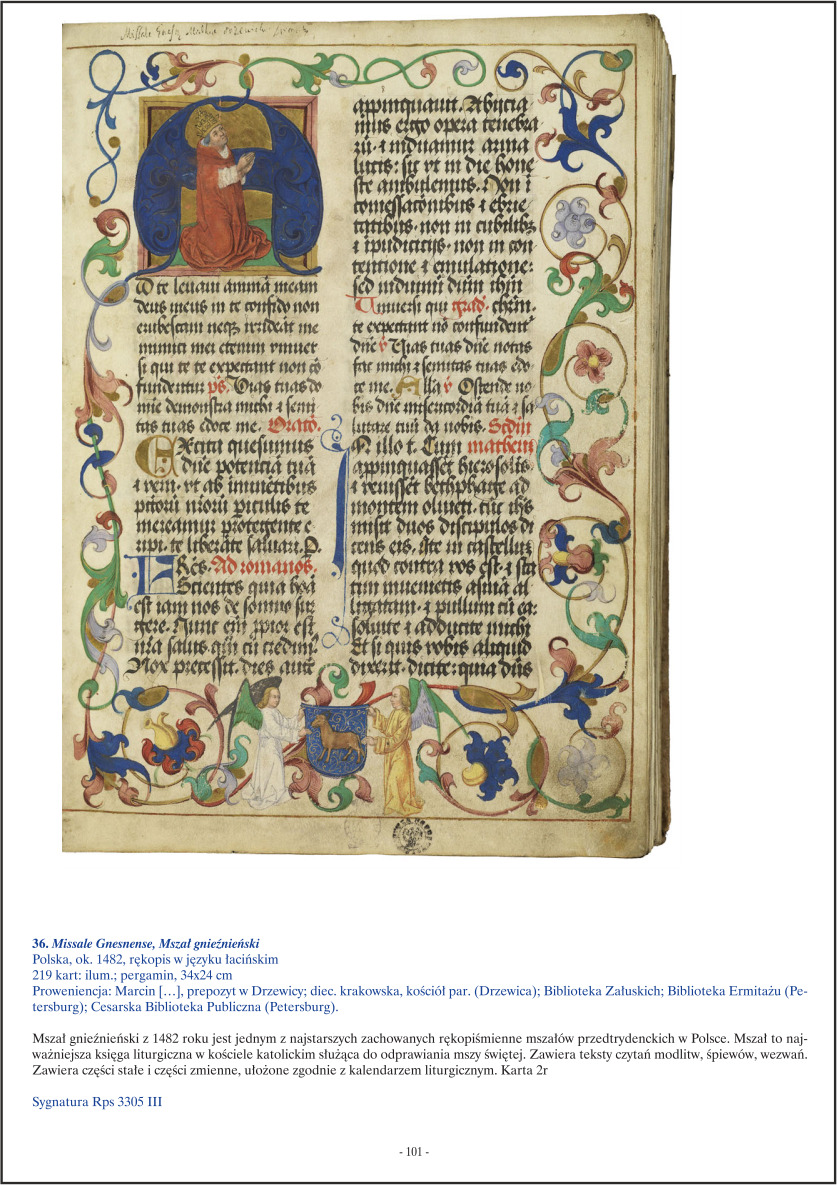 Missale
A
D te levavi animā meam
deus meus in te confido non
erubescam neqȝ irrideāt me
inimici mei etenim
qui te expectant non cō
fundentur ps̄. Vias tuas do
mīe demonstra michi ⁊ semi
tas tuas edoce me. Oratō.
EXcita quesumus
dn̄e potenciā tuā
⁊ veni. vt ab
te
mereamur protegente e
ripi. te liberāte saluari. P.
FRēs. Ad romanos.
Scientes quia
est iam nos de somno sur
gere. Nunc
nr̄a salus. credim
Nox precessit. dies autē
appinquauit. Abicia
mus ergo opera tenebra
rū. ⁊ induamur arma
lucis: sic vt in die hone
ste ambulemus. Non ī
comessatōnibus ⁊ ebrie
tatibus. non in cubilibȝ
⁊ īpudicitijs. non in con
tentione ⁊ emulatione:
sed
Vniuersi qui grad.
te expectant nō confundent
dn̄e v̄ Vias tuas dn̄e notas
fac michi ⁊ semitas tuas edo
ce me. Alla v̄ Ostende no
bis dn̄e misericordiā tuā ⁊ sa
lutare tuū da nobis. Scdm
IN illo t. Cum matheū
appinquasset
⁊ venisset bethphage ad
montem oliueti. tūc ihs
misit duos discipulos di
cens eis. Ite in castellum
quod contra vos est. ⁊
inuenietis asinā al
ligatam. ⁊ pullum cū ea:
soluite ⁊ adducite michi
Et si quis vobis aliquid
dixerit. dicite: quia dn̄s
36. Missale Gnesnense, Mszał gnieźnieński
Polska, ok. 1482, rękopis w języku łacińskim
219 kart: ilum.; pergamin, 34x24 cm
Proweniencja: Marcin […], prepozyt w Drzewicy; diec. krakowska, kościół par. (Drzewica); Biblioteka Załuskich; Biblioteka Ermitażu (Pe-
tersburg); Cesarska Biblioteka Publiczna (Petersburg).
Mszał gnieźnieński z 1482 roku jest jednym z najstarszych zachowanych rękopiśmienne mszałów przedtrydenckich w Polsce. Mszał to naj-
ważniejsza księga liturgiczna w kościele katolickim służąca do odprawiania mszy świętej. Zawiera teksty czytań modlitw, śpiewów, wezwań.
Zawiera części stałe i części zmienne, ułożone zgodnie z kalendarzem liturgicznym. Karta 2r
Sygnatura Rps 3305 III
- 101 -